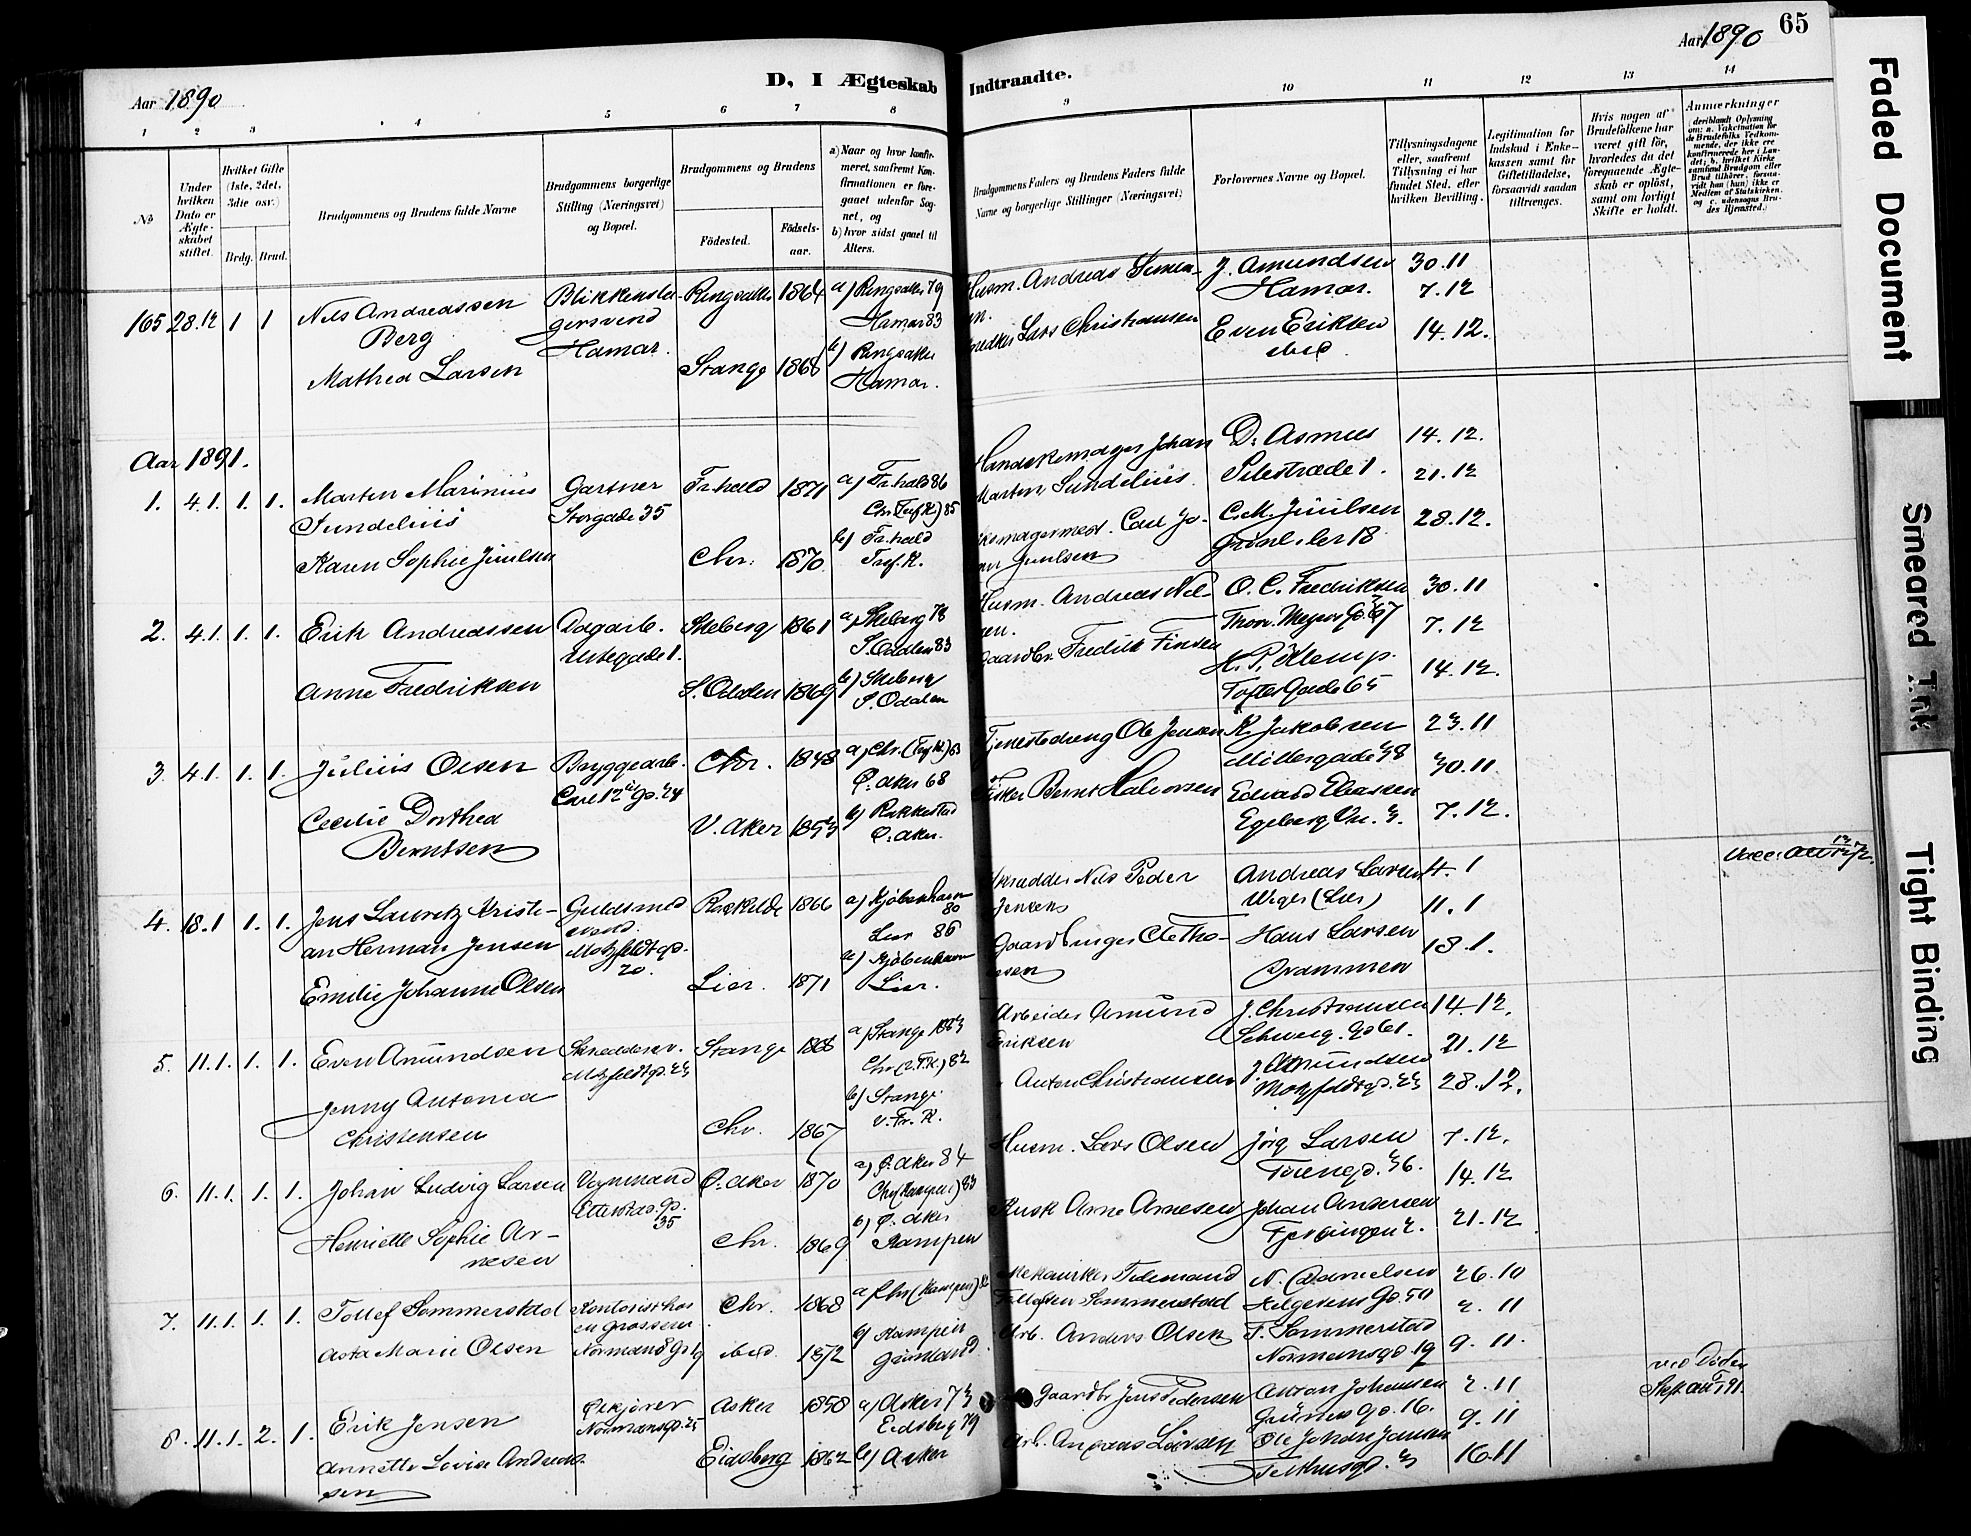 Aar 1890
D, I Ægteskab Indtraadte.
Aar 1890 65
1 2 3 4 5 6 7 8 9 10 11 12 13 14
No
Under hvilken Dato er Ægteskabet stiftet.
Hvilket Gifte (1ste, 2det, 3die osv.)
Brdg. Brud.
Brudgommens og Brudens fulde Navne
Brudgommens borgerlige Stilling (Næringsvei) og Bopæl.
Brudgommens og Brudens
Födested.
Födsels-aar.
a) Naar og hvor konfirmeret, saafremt Konfirmationen er foregaaet udenför Sognet, og
b) hvor sidst gaaet til Alters.
Brudgommens Faders og Brudens Faders fulde Navne og borgerlige Stillinger (Næringsvei)
Forlovernes Navne og Bopæl.
Tillysningsdagene eller, saafremt Tillysning ei har fundet Sted, efter hvilken Bevilling.
Legitimation for Indskud i Enkekassen samt for Giftetilladelse, forsaavidt saadan tiltrænges.
Hvis nogen af Brudefolkene har været gift før, hvorledes da det foregaaende Ægteskab er oplöst, samt om lovligt Skifte er holdt.
Anmærkninger
(deriblandt Oplysning om: a. Vakcination for de Brudefolks Vedkommende, der ikke ere konfirmerede her i Landet; b. hvilket Kirkesamfund Brudgom eller Brud tilhører, forsaavidt han (hun) ikke er Medlem af Statskirken. og c. udensogns Brudes Hjemsted.)
165 28.12 1 1 Nils Andreassen Berg
Hamar. Ringsaker 1864 a) Ringsaker 79
Hamar 83
Mathea Larsen Stange 1868 b) Ringsaker
Hamar.
Husm. Andreas J. Amundsen 30.11
Hamar. 7.12
Lars Christiansen Even Eriksen 14.12.
Aar 1891.
1. 4.1. 1. 1. Marten Marinius Sundelius
Gartner
Storgade 35
Fr.hald 1871 a) Fr.hald 86
b) Fr.hald
Karen Sophie Juulsen Chr. 1870
Handskemager Johan Marten Sundelius. D. Asmus 14.12.
Pilestræde 1. 21.12
Carl Juulsen C.M. Juulsen 28.12.
2. 4.1. 1. 1. Erik Andreassen Dagarb. Skeberg 1861 a) Skeberg 78
S. Odalen 83
Anne Fredriksen S. Odalen 1869 b) Skeberg
S. Odalen
Husm. Andreas O. C. Fredriksen 30.11
Thorv. Meyers Gd. 67 7.12
Gaardbr. Fredrik
Toftes Gade 65 14.12.
3. 4.1. 1. 1. Julius Olsen Bryggearb. Chr. 1848 68
Cecilie Dorthea Berntsen V. Aker 1853 b) Rakkestad
Ø. Aker.
Tjenestedreng Ole Jensen K. Jakobsen 23.11
Møllergade 38 30.11
Fisker Bernt Halvorsen Edvard Eliassen
Egeberg 3. 7.12.
4. 18.1 1. 1. Jens Lauretz Kristian Herman Jensen
Guldsmed
Motzfeldtgd. 20.
Roskilde 1866 a) Kjøbenhavn 80
Lier 86
Emilie Johanne Olsen Lier. 1871 b) Kjøbenhavn
Lier.
Skrædder Nils Peder Jensen Andreas Larsen 4.1
(Lier) 11.1
Gaardbruger Hans Larsen 18.1.
Drammen
5. 11.1. 1. 1. Even Amundsen Skreddersv.
Motzfeldtgd. 23
Stange 1866 a) Stange 1883
Jenny Antonia Christensen Chr. 1867 b) Stange
V. Fr. K.
Arbeider Amund Eriksen J. Christiansen 14.12.
Schweig. Gd 61. 21.12
Anton Christiansen J. Amundsen
Motzfeldtgd. 23 28.12.
6. 11.1. 1. 1. Johan Ludvig Larsen Vognmand
Etterstadgd. 35
Ø. Aker 1870 a) Ø. Aker 84
Chr (Kampen) 83
Henriette Sophie Arnesen Chr. 1869 b) Ø. Aker
Kampen
Husm. Lars Olsen Jörg Larsen 7.12.
36. 14.12
Kusk Arne Arnesen Johan Andersen
Fjerdingen 2. 21.12
7. 11.1. 1. 1. Tollef Sommerstad Kontorist hos
en grosserer
Normansgd 19
Chr. 1868 a) Chr (Kampen) 82
Asta Marie Olsen ibid. 1872 b) Kampen
Grønland
Mekaniker Tidemand Tollefsen Sommerstad N. Danielsen 26.10
Helgesens Gd. 50 2.11
Arb. Anders Olsen T. Sommerstad
Normansgd. 19 9.11.
8. 11.1. 2. 1. Erik Jensen Ølkjører
Normansgd. 25
Asker 1858 a) Asker 73
Eidsberg 79
Annette Lovise Andreassen Eidsberg 1862 b) Asker
Gaardbr Jens Pedersen Anton Johansen 2.11
Grüners Gd. 16. 9.11
Arb. Andreas Larsen Ole Johan Jansen
3 16.11
ved Døden
Faded Document
Smeared Ink
Tight Binding